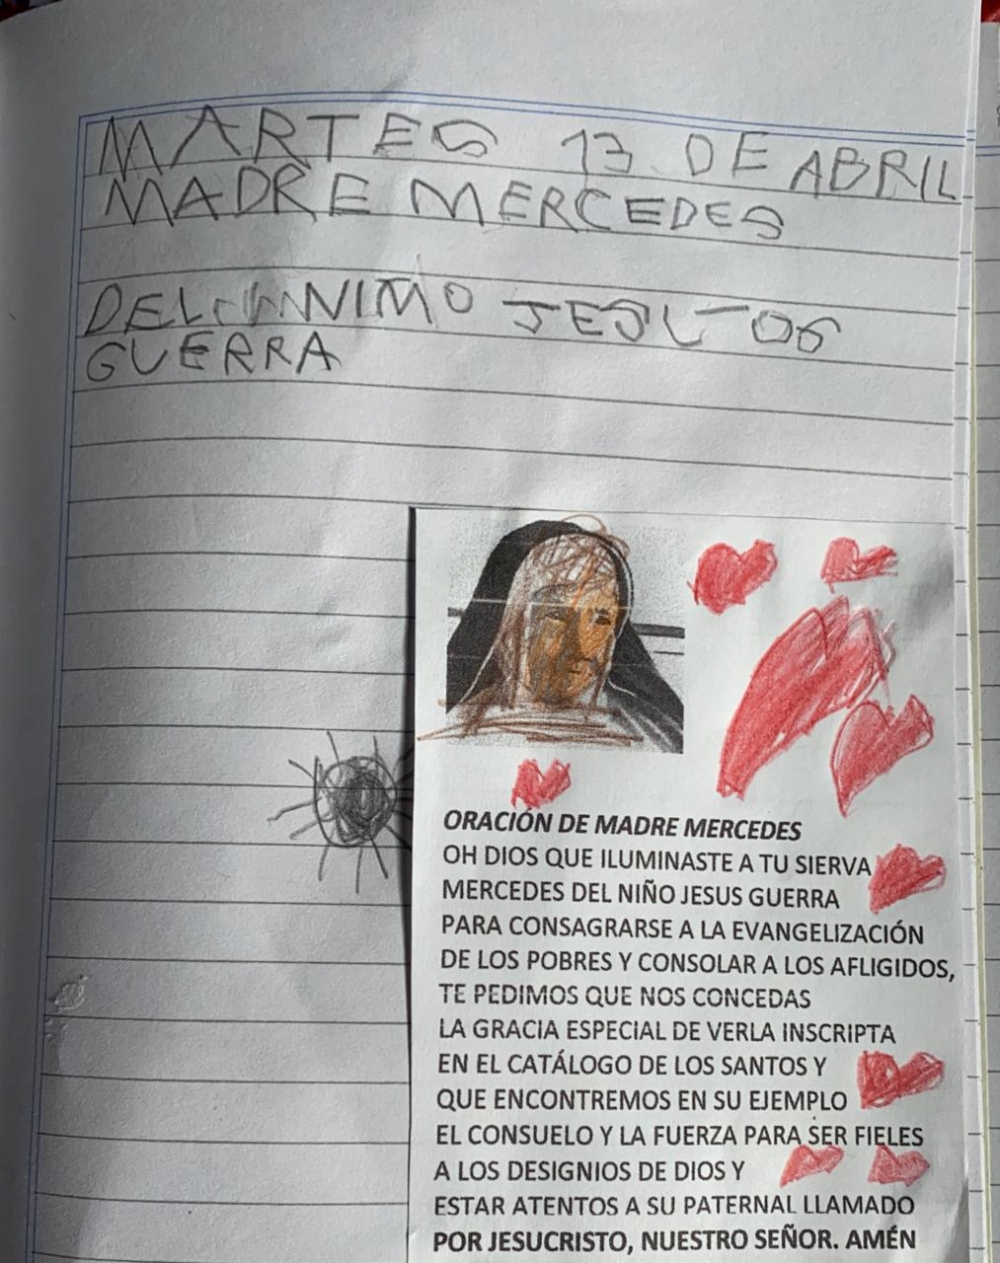 MARTES 13 DE ABRIL
MADRE MERCEDES
GUERRA
ORACIÓN DE MADRE MERCEDES
OH DIOS QUE ILUMINASTE A TU SIERVA
MERCEDES DEL NIÑO JESUS GUERRA
PARA CONSAGRARSE A LA EVANGELIZACIÓN
DE LOS POBRES Y CONSOLAR A LOS AFLIGIDOS,
TE PEDIMOS QUE NOS CONCEDAS
LA GRACIA ESPECIAL DE VERLA INSCRIPTA
EN EL CATÁLOGO DE LOS SANTOS Y
QUE ENCONTREMOS EN SU EJEMPLO
EL CONSUELO Y LA FUERZA PARA SER FIELES
A LOS DESIGNIOS DE DIOS Y
ESTAR ATENTOS A SU PATERNAL LLAMADO
POR JESUCRISTO, NUESTRO SEÑOR. AMÉN